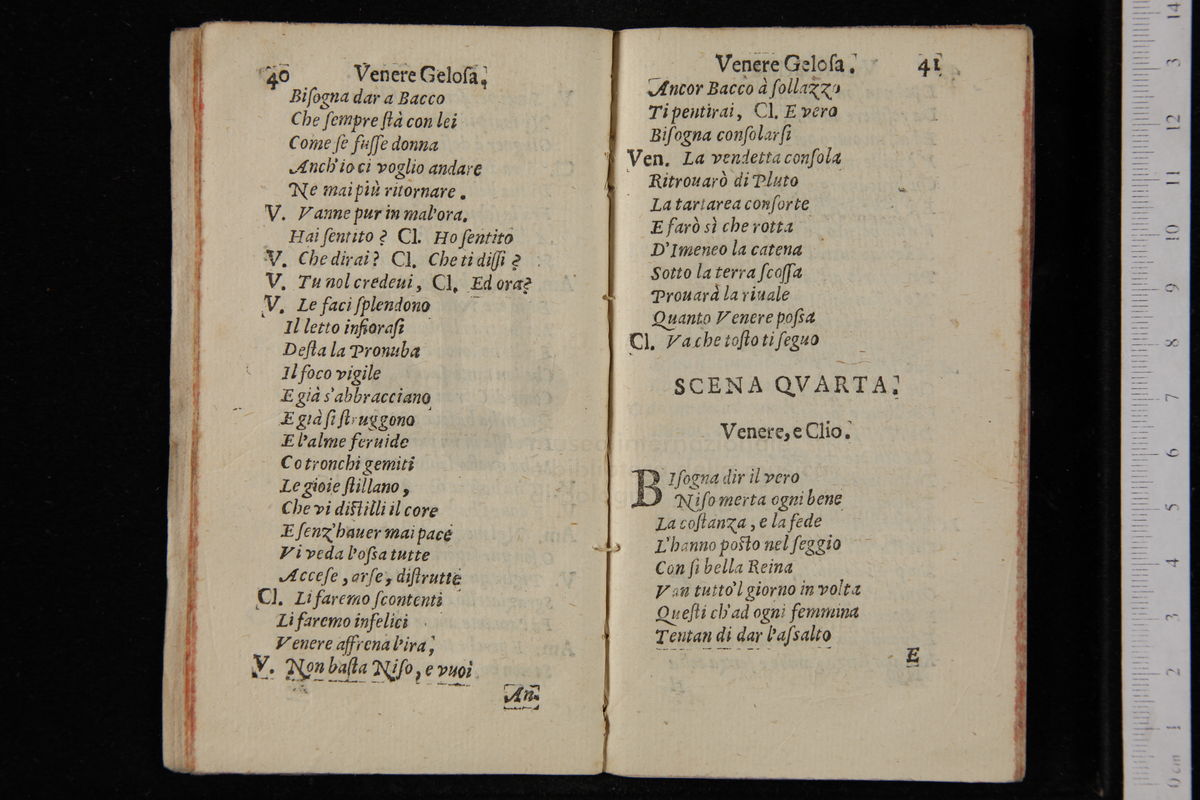 40 Venere Geloſa.
Biſogna dar a Bacco
Che ſempre ſtà con lei
Come ſe fuſſe donna
Anch'io ci voglio andare
Ne mai più ritornare.
V. Vanne pur in mal'ora.
Hai ſentito? Cl. Ho ſentito
V. Che dirai? Cl. Che ti diſſi?
V. Tu nol credeui, Cl. Ed ora?
V. Le faci ſplendono
Il letto infioraſi
Deſta la Pronuba
Il foco vigile
E già s'abbracciano
E già ſi ſtruggono
E l'alme feruide
Co tronchi gemiti
Le gioie ſtillano,
Che vi diſtilli il core
E ſenz'hauer mai pace
Vi veda l'oſsa tutte
Acceſe, arſe, diſtrutte
Cl. Li faremo ſcontenti
Li faremo infelici
Venere affrena l'ira,
V. Non baſta Niſo, e vuoi
An-
Venere Geloſa. 41
Ancor Bacco à ſollazzo
Ti pentirai, Cl. E vero
Biſogna conſolarſi
Ven. La vendetta conſola
Ritrouarò di Pluto
La tartarea conſorte
E farò sì che rotta
D'Imeneo la catena
Sotto la terra ſcoſſa
Prouarà la riuale
Quanto Venere poſsa
Cl. Va che toſto ti ſeguo
SCENA QVARTA.
Venere, e Clio.
BIſogna dir il vero
Niſo merta ogni bene
La coſtanza, e la fede
L'hanno poſto nel ſeggio
Con ſi bella Reina
Van tutto'l giorno in volta
Queſti ch'ad ogni femmina
Tentan di dar l'aſsalto
E